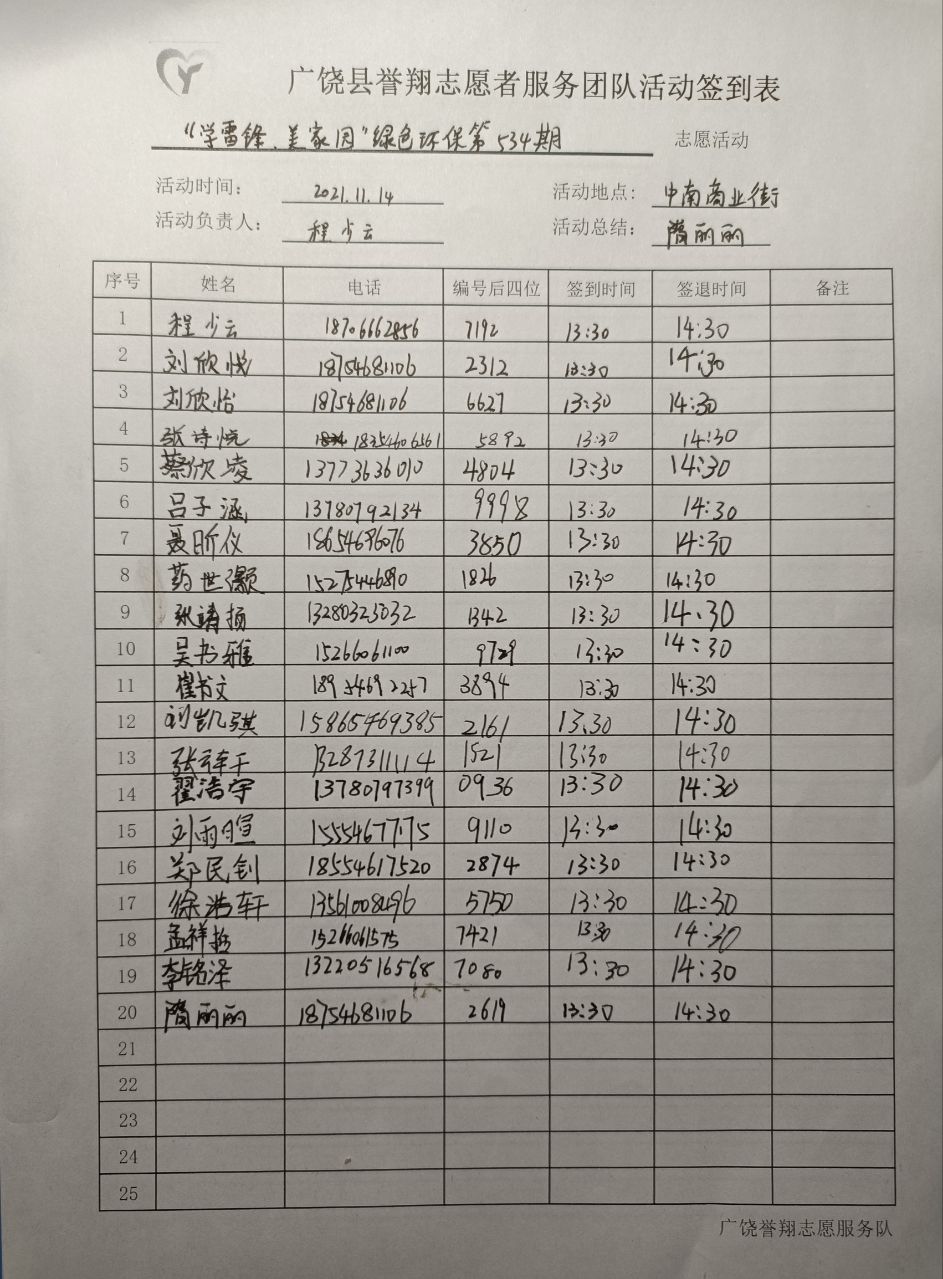 广饶县誉翔志愿者服务团队活动签到表
“学雷锋、美家园”绿色环保第534期 志愿活动
活动时间: 2021.11.14 活动地点: 中南商业街
活动负责人: 程少云 活动总结: 隋丽丽
序号 姓名 电话 编号后四位 签到时间 签退时间 备注
1 程少云 18706662856 7192 13:30 14:30
2 刘欣悦 18754681106 2312 13:30 14:30
3 刘欣怡 18754681106 6627 13:30 14:30
4 张诗悦 18354606561 5892 13:30 14:30
5 蔡欣凌 13773636010 4804 13:30 14:30
6 吕子涵 13780792134 9998 13:30 14:30
7 聂昕仪 18654696076 3850 13:30 14:30
8 世灏 15275446890 1826 13:30 14:30
9 张靖 13280323032 1342 13:30 14:30
10 吴书雅 15266061100 9729 13:30 14:30
11 崔书文 18954692257 3894 13:30 14:30
12 刘凯骐 15865469385 2161 13:30 14:30
13 张 13287311114 1521 13:30 14:30
14 翟浩宇 13780797399 0936 13:30 14:30
15 刘雨暄 15554677175 9110 13:30 14:30
16 郑民钊 18554617520 2874 13:30 14:30
17 徐浩轩 13561008496 5750 13:30 14:30
18 孟祥 15266061575 7421 13:30 14:30
19 李铭泽 13220516568 7080 13:30 14:30
20 隋丽丽 18754681106 2619 13:30 14:30
21
22
23
24
25
广饶誉翔志愿服务队